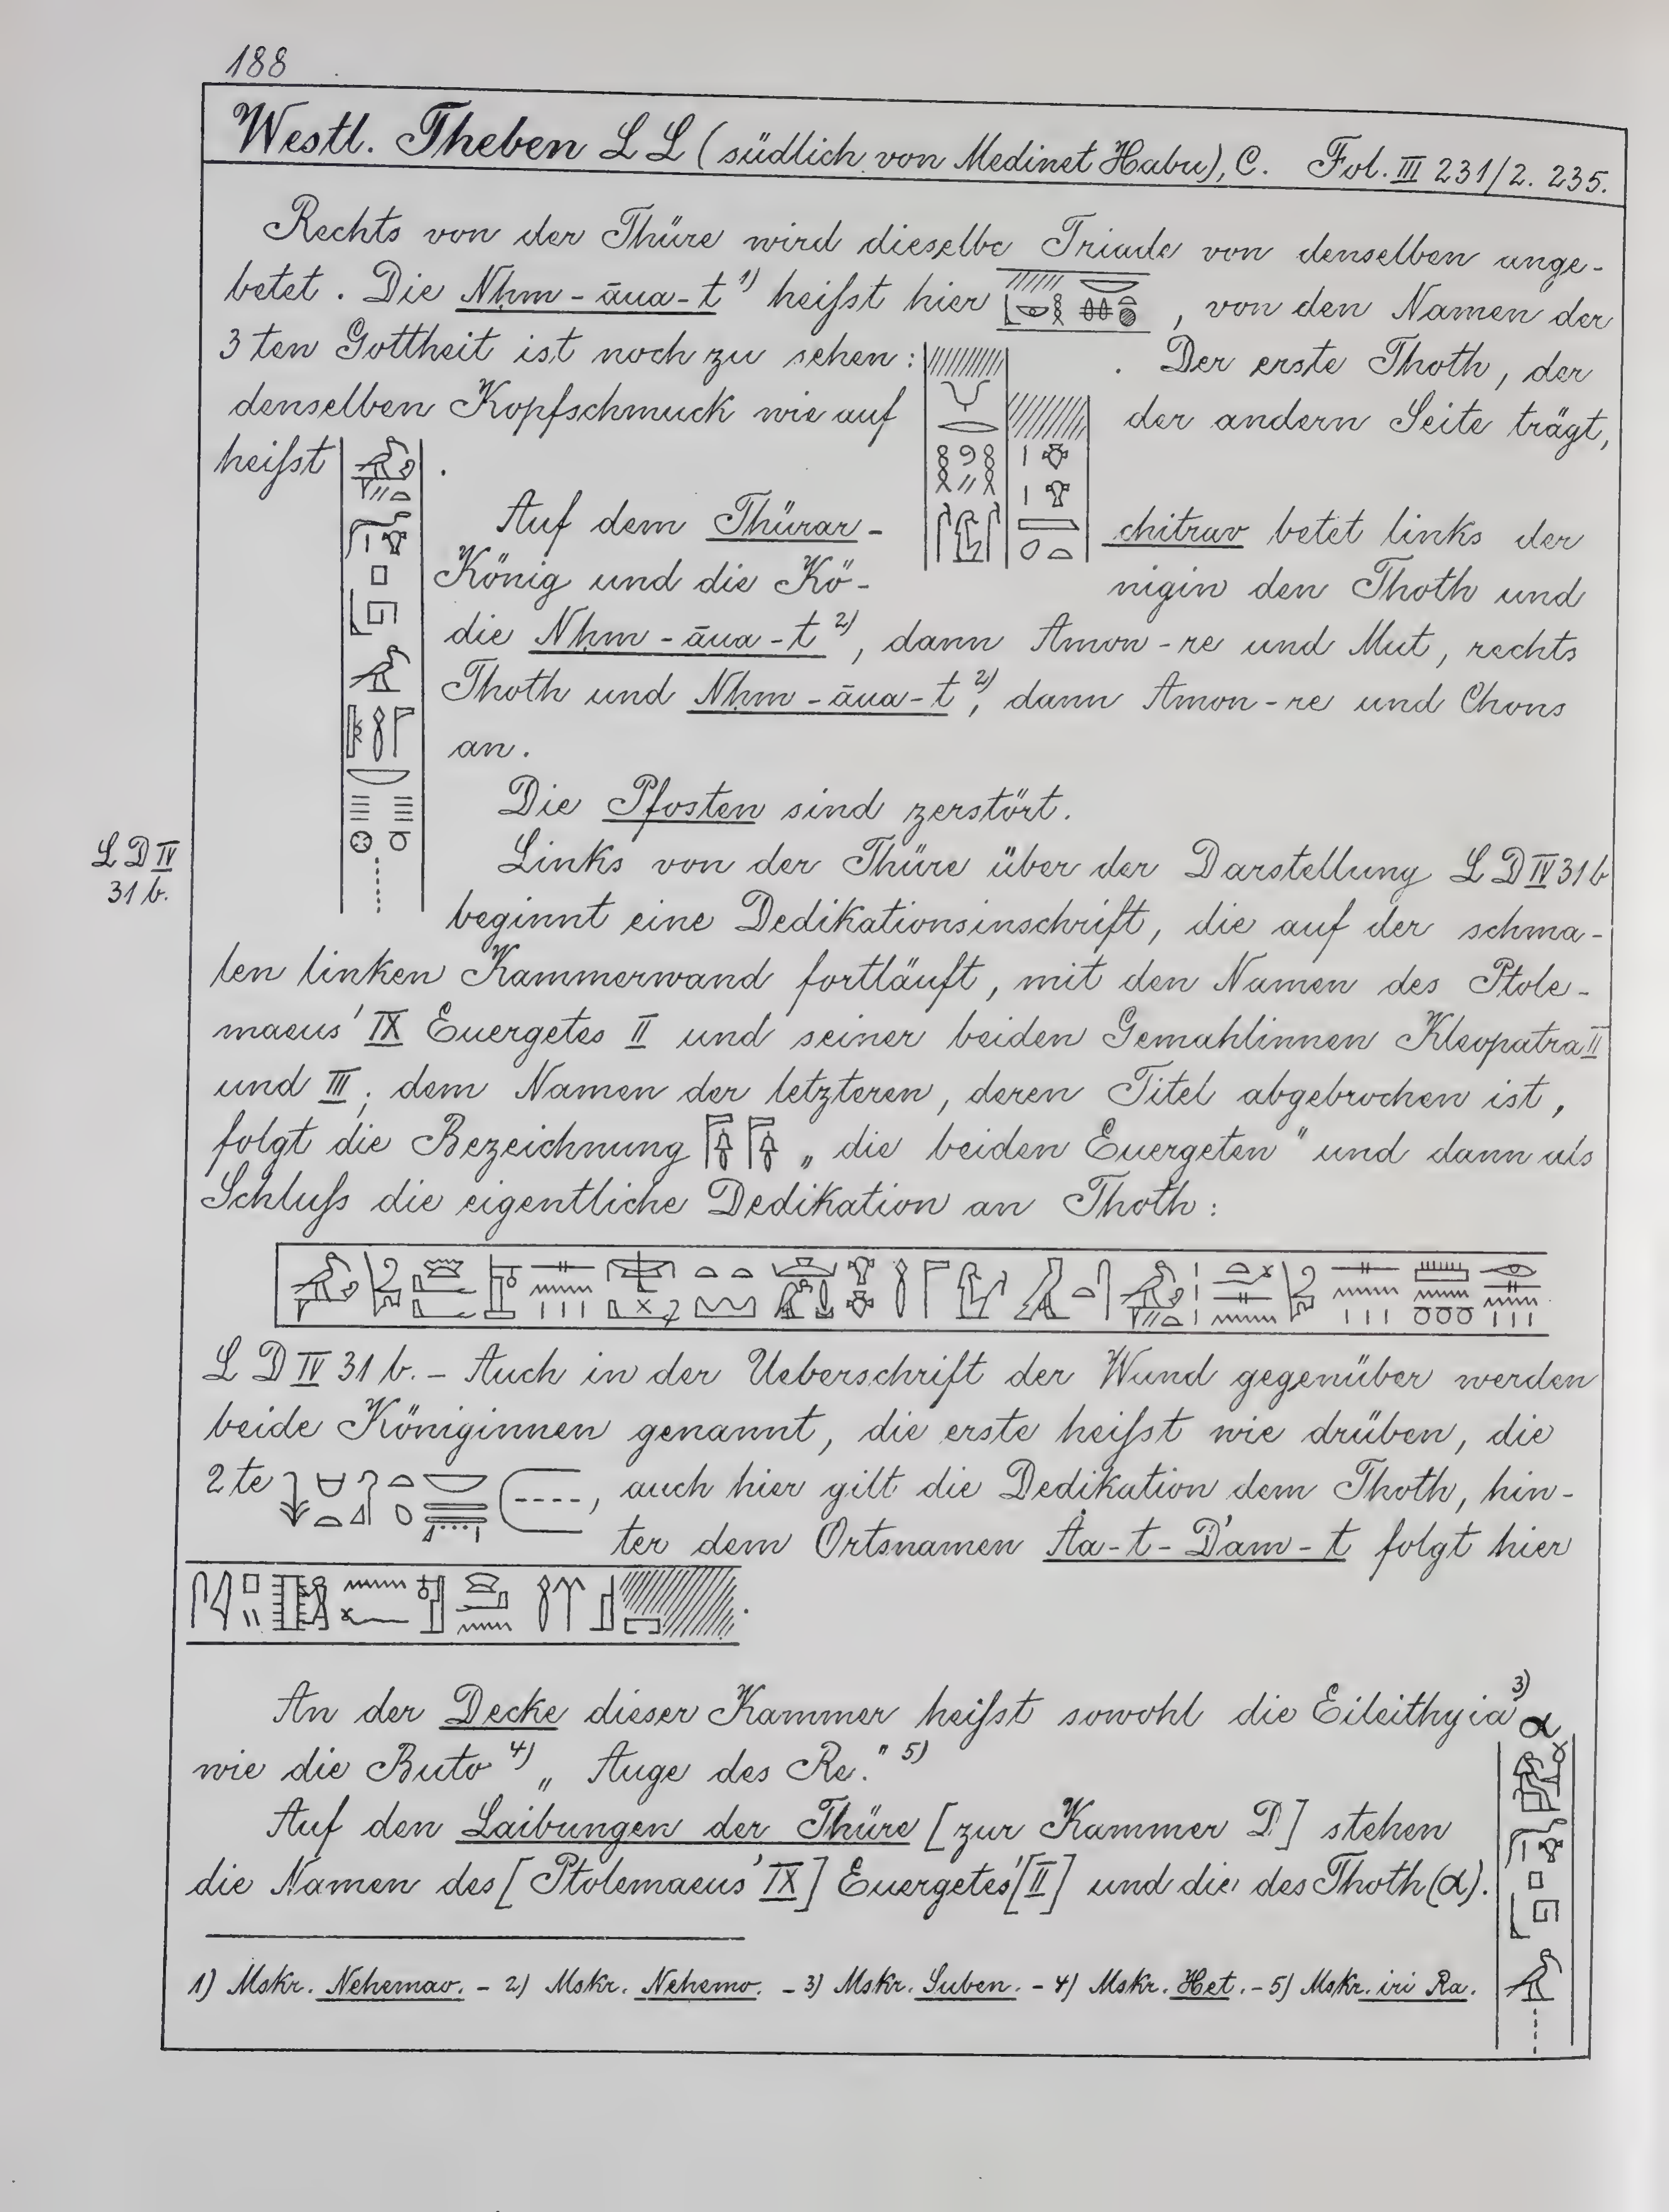 188
Westl. Theben L L (südlich von Medinet Habu), C. Fol. III 231/2. 235.
Rechts von der Thüre wird dieselbe Triade von denselben ange-
betet. Die Nḥm-āua-t 1) heifst hier , von den Namen der
3 ten Gottheit ist noch zu sehen: . Der erste Thoth, der
denselben Kopfschmuck wie auf der andern Seite trägt,
heifst .
Auf dem Thürar-chitrav betet links der
König und die Kö-nigin den Thoth und
die Nḥm-āua-t 2), dann Amon-re und Mut, rechts
Thoth und Nḥm-āua-t 2), dann Amon-re und Chons
an.
Die Pfosten sind zerstört.
L D IV
31 b.
Links von der Thüre über der Darstellung L D IV 31 b
beginnt eine Dedikationsinschrift, die auf der schma-
len linken Kammerwand fortläuft, mit den Namen des Ptole-
maeus' IX Euergetes II und seiner beiden Gemahlinnen Kleopatra II
und III; dem Namen der letzteren, deren Titel abgebrochen ist,
folgt die Bezeichnung „die beiden Euergeten" und dann als
Schlufs die eigentliche Dedikation an Thoth:
L D IV 31 b. - Auch in der Ueberschrift der Wand gegenüber werden
beide Königinnen genannt, die erste heifst wie drüben, die
2 te , auch hier gilt die Dedikation dem Thoth, hin-
ter dem Ortsnamen Ȧa-t-D'am-t folgt hier
.
An der Decke dieser Kammer heifst sowohl die Eileithyia 3) α
wie die Buto 4) „Auge des Re." 5)
Auf den Laibungen der Thüre [zur Kammer D] stehen
die Namen des [Ptolemaeus' IX] Euergetes' [II] und die des Thoth (α).
1) Mskr. Nehemao. - 2) Mskr. Nehemo. - 3) Mskr. Suben. - 4) Mskr. Het. - 5) Mskr. iri Ra.